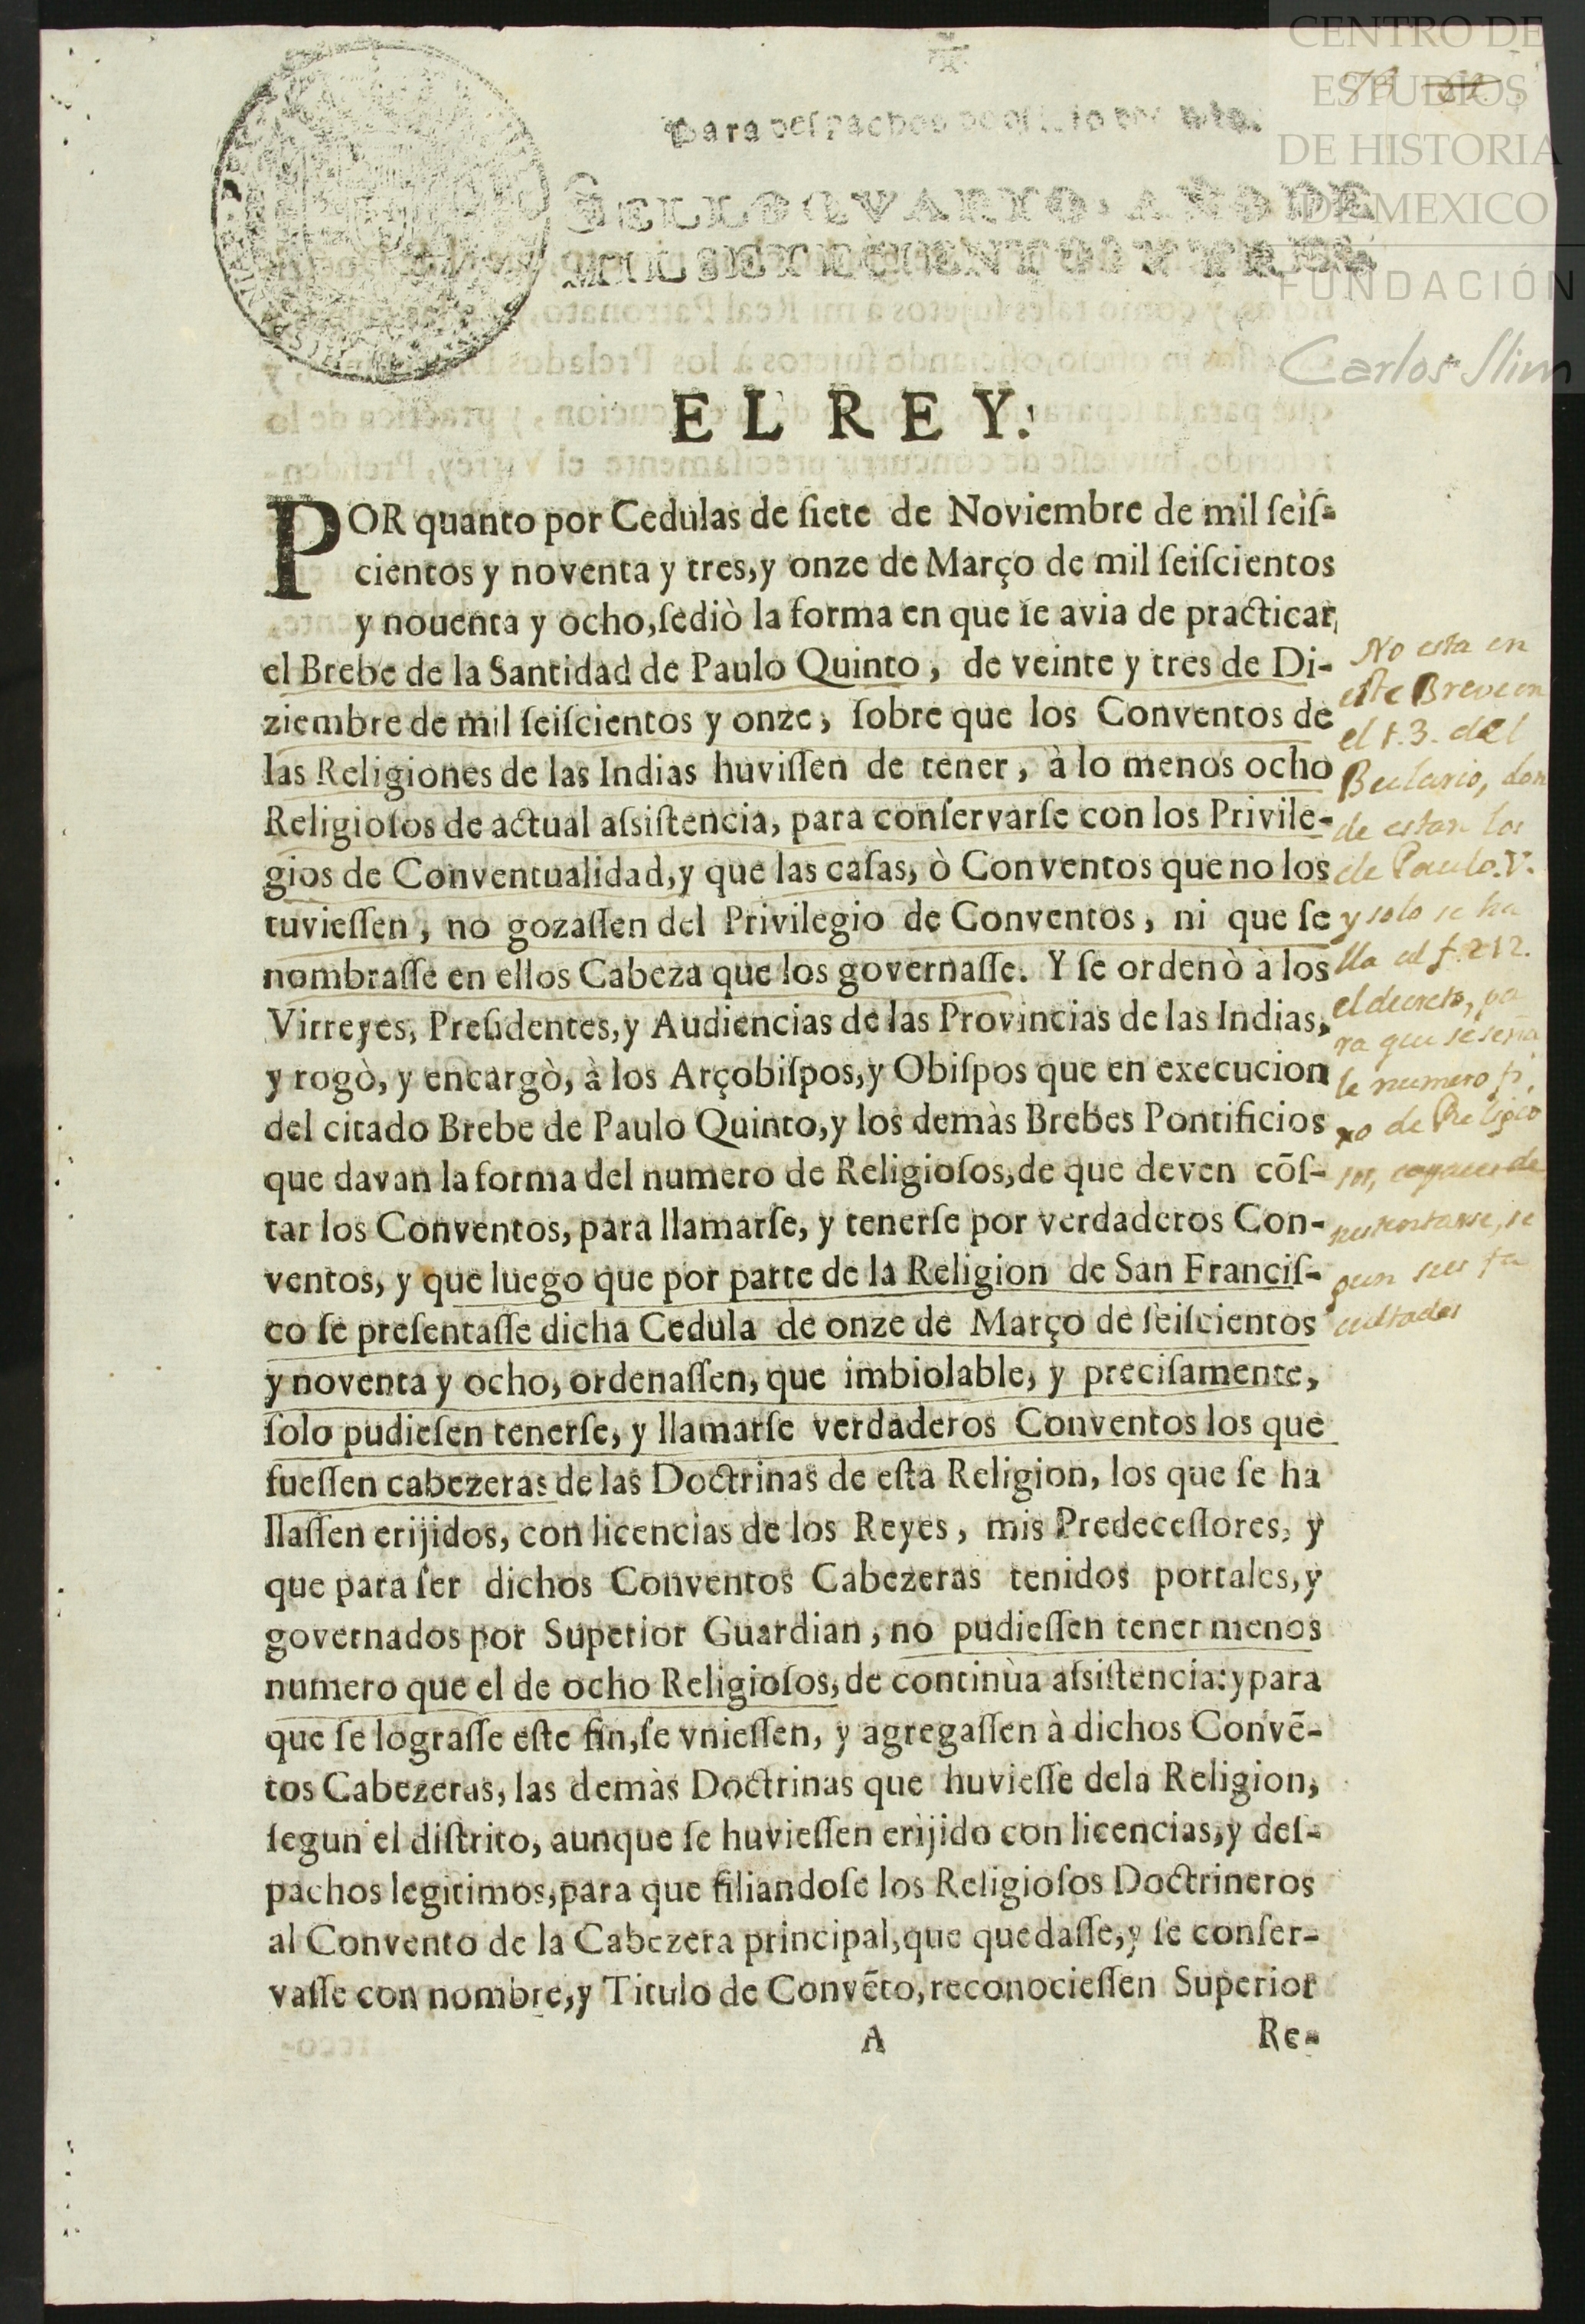 CENTRO DE
ESTUDIOS
DE HISTORIA
DE MEXICO
FUNDACIÓN
Carlos Slim
Para despachos de oficio
SELLO QVARTO, AÑO DE
MIL SETECIENTOS Y TRES
EL REY.
POR quanto por Cedulas de siete de Noviembre de mil seiſ-
cientos y noventa y tres, y onze de Março de mil ſeiſcientos
y nouenta y ocho, ſediò la forma en que ſe avia de practicar,
el Brebe de la Santidad de Paulo Quinto, de veinte y tres de Di-
ziembre de mil ſeiſcientos y onze, ſobre que los Conventos de
las Religiones de las Indias huviſſen de tener, à lo menos ocho
Religioſos de actual aſsiſtencia, para conſervarſe con los Privile-
gios de Conventualidad, y que las caſas, ò Conventos que no los
tuvieſſen, no gozaſſen del Privilegio de Conventos, ni que ſe
nombraſſe en ellos Cabeza que los governaſſe. Y ſe ordenò à los
Virreyes, Preſidentes, y Audiencias de las Provincias de las Indias,
y rogò, y encargò, à los Arçobiſpos, y Obiſpos que en execucion
del citado Brebe de Paulo Quinto, y los demàs Brebes Pontificios
que davan la forma del numero de Religioſos, de que deven cõſ-
tar los Conventos, para llamarſe, y tenerſe por verdaderos Con-
ventos, y que luego que por parte de la Religion de San Franciſ-
co ſe preſentaſſe dicha Cedula de onze de Março de ſeiſcientos
y noventa y ocho, ordenaſſen, que imbiolable, y preciſamente,
ſolo pudieſen tenerſe, y llamarſe verdaderos Conventos los que
fueſſen cabezeras de las Doctrinas de eſta Religion, los que ſe ha
llaſſen erijidos, con licencias de los Reyes, mis Predeceſſores, y
que para ſer dichos Conventos Cabezeras tenidos portales, y
governados por Superior Guardian, no pudieſſen tener menos
numero que el de ocho Religioſos, de continùa aſsiſtencia: y para
que ſe lograſſe eſte fin, ſe vnieſſen, y agregaſſen à dichos Convẽ-
tos Cabezeras, las demàs Doctrinas que huvieſſe dela Religion,
ſegun el diſtrito, aunque ſe huvieſſen erijido con licencias, y deſ-
pachos legitimos, para que filiandoſe los Religioſos Doctrineros
al Convento de la Cabezera principal, que quedaſſe, y ſe conſer-
vaſſe con nombre, y Titulo de Convẽto, reconocieſſen Superior
A Re-
No esta en
este Breve en
el t.3. del
Bulario, don
de estan los
de Paulo.V.
y solo se ha
lla al f.212.
el decreto, pa
ra que se seña
le numero fi
xo de Religio
sos,
sustentarse, se
gun sus fa
cultades